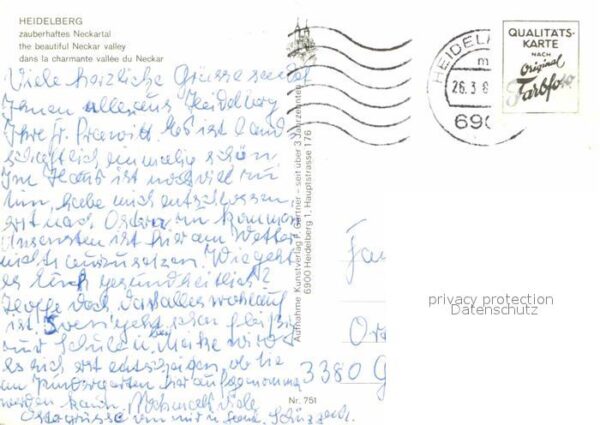 HEIDELBERG
zauberhaftes Neckartal
the beautiful Neckar valley
dans la charmante vallée du Neckar
Viele herzliche Grüsse sendet
Ihnen allen aus Heidelberg
Ihre Fr. Es ist land-
schaftlich einmalig schön.
Im Haus ist noch viel zu
tun, habe mich entschlossen,
erst nach Ostern zu kommen.
Ansonsten ist hier am Wetter
nichts auszusetzen. Wie geht
es Euch gesundheitlich?
Hoffe doch, dass alles wohlauf
ist. geht schon fleißig
zur Schule u. bei wird
es sich erst entscheiden, ob sie
im Kindergarten hier aufgenommen
werden kann. Nochmals viele
Ostergrüsse von mir u.
Aufnahme Kunstverlag F. Gärtner – seit über 3 Jahrzehnten
6900 Heidelberg 1, Hauptstrasse 176
Nr. 751
HEIDEL
26.3.8
690
QUALITÄTS-
KARTE
NACH
Original
Farbfoto
Fa
3380 G
privacy protection
Datenschutz